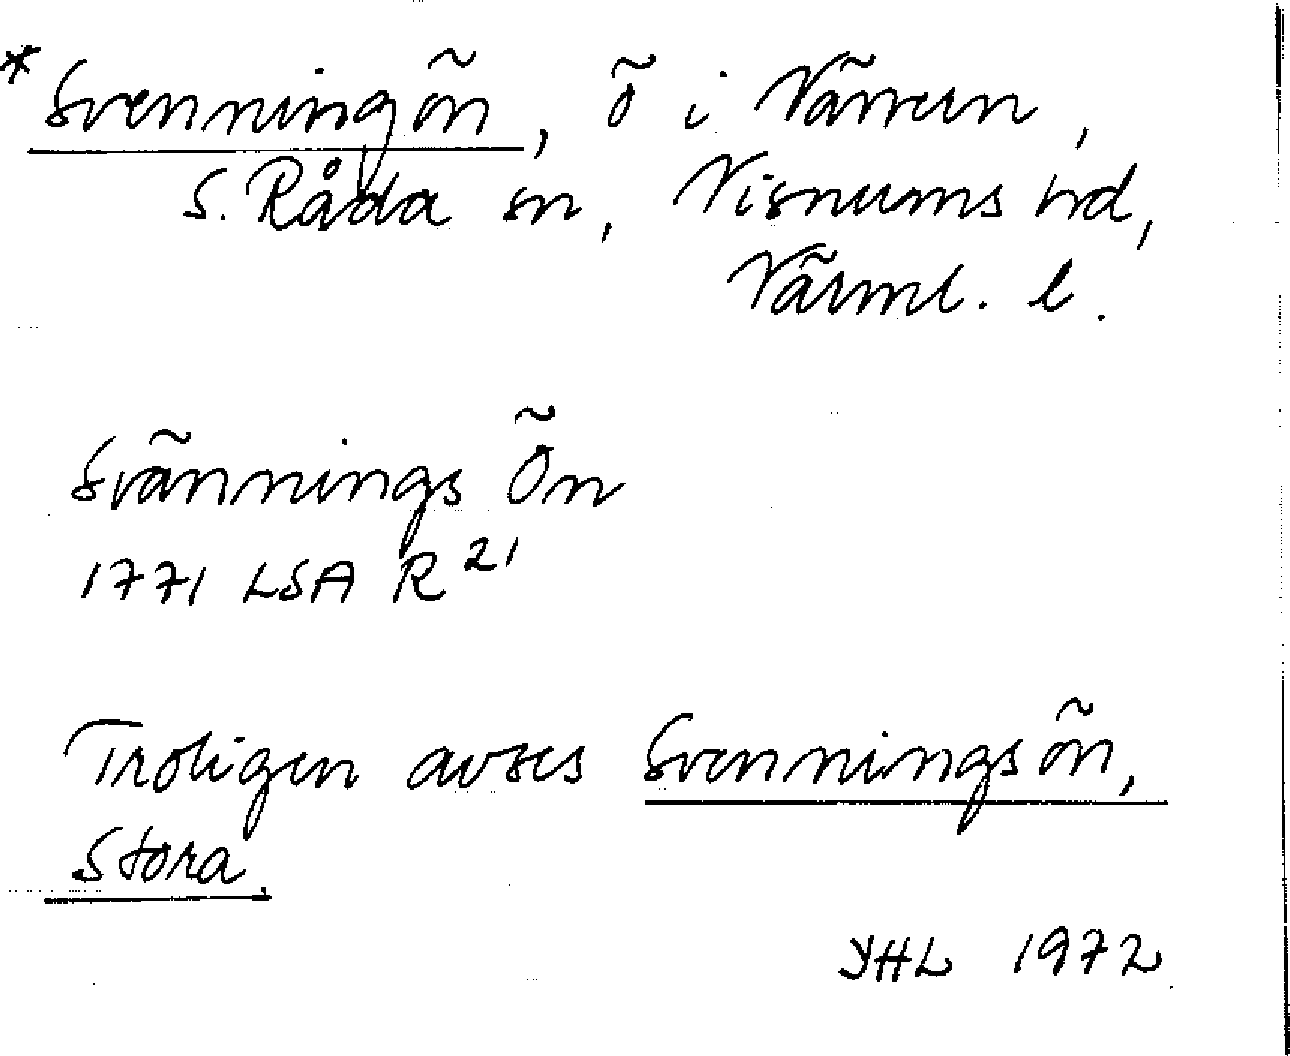 * Svenningön, ö i Vänern,
S. Råda sn, Visnums hd,
Värml. l.
Svännings Ön
1771 LSA R 21
Troligen avses Svenningsön,
Stora.
YHL 1972